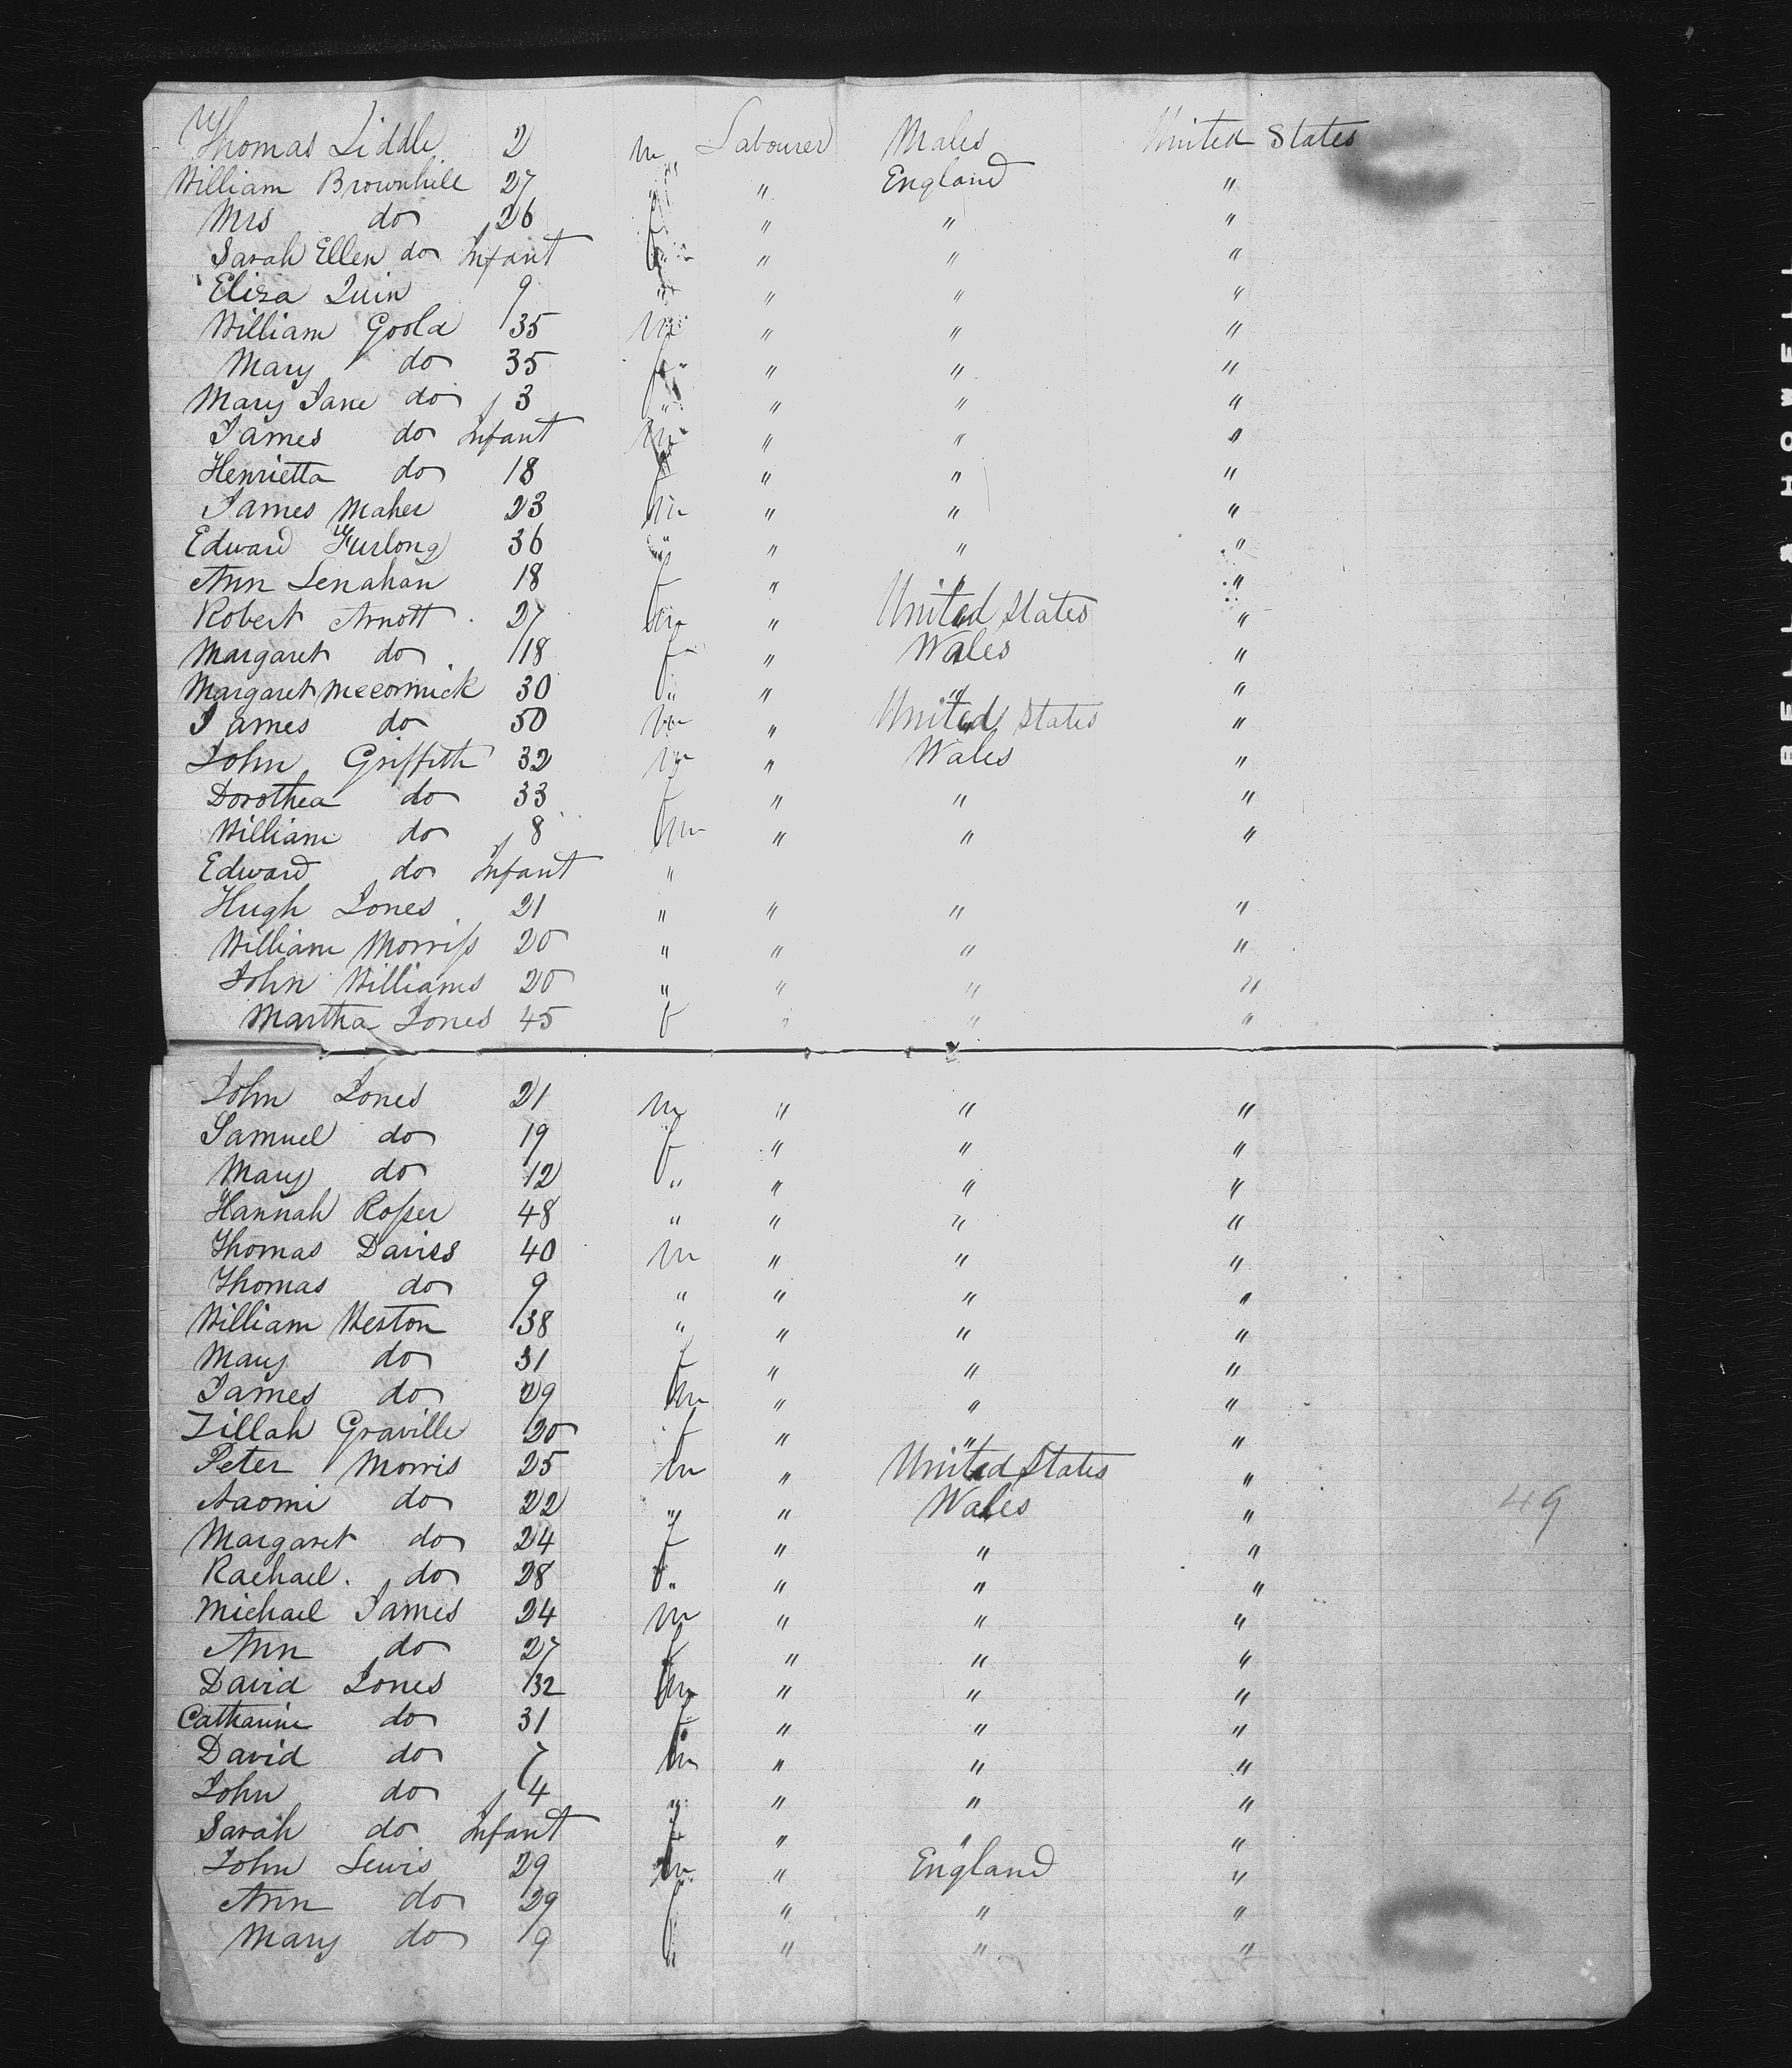 Thomas Liddle 2 m Labourer Wales United States
William Brownhill 27 " " England "
Mrs do 26 f " " "
Sarah Ellen do Infant " " " "
Eliza Quin 9 " " " "
William Goold 35 m " " "
Mary do 35 f " " "
Mary Jane do 3 " " " "
James do Infant m " " "
Henrietta do 18 f " " "
James Maher 23 m " " "
Edward Furlong 36 " " " "
Ann Lenahan 18 f " " "
Robert Arnott 27 m " United States "
Margaret do 18 f " Wales "
Margaret McCormick 30 " " " "
James do 50 m " United States "
John Griffith 32 m " Wales "
Dorothea do 33 f " " "
William do 8 m " " "
Edward do Infant "
Hugh Jones 21 " " " "
William Morriss 20 " " " "
John Williams 20 " " " "
Martha Jones 45 f " " "
John Jones 21 m " " "
Samuel do 19 f " " "
Mary do 12 " " " "
Hannah Rosser 48 " " " "
Thomas Davies 40 m " " "
Thomas do 9 " " " "
William Weston 38 " " " "
Mary do 31 f " " "
James do 29 m " " "
Zillah Graville 20 f " " "
Peter Morris 25 m " United States "
Naomi do 22 " " Wales "
49
Margaret do 24 f " " "
Rachael. do 28 " " " "
Michael James 24 m " " "
Ann do 27 f " " "
David Jones 32 m " " "
Catharine do 31 f " " "
David do 7 m " " "
John do 4 " " " "
Sarah do Infant f " " "
John Lewis 29 m " England "
Ann do 29 f " " "
Mary do 9 " " " "
BELL & HOWELL